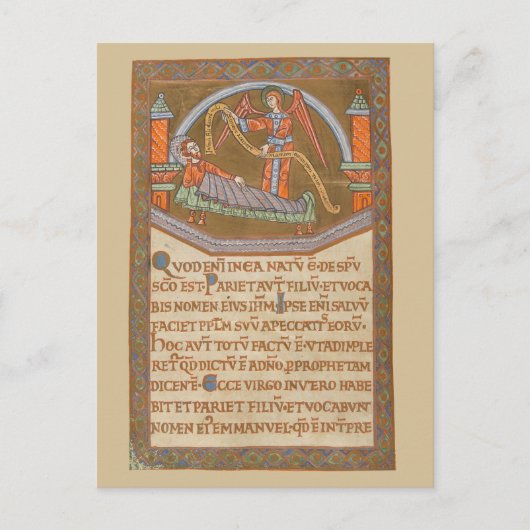 QUOD ENĪ IN EA NATŪ Ē · DE SPŪ
SCO EST · PARIET AUT̄ FILIŪ · ET VOCA
BIS NOMEN EIUS IHM̄ · IPSE ENĪ SALVŪ
FACIET PPLM̄ SUŪ A PECCATIS EORŪ ·
HOC AUT̄ TOTŪ FACTŪ Ē · UT ADIMPLE
RET̄ QD̄ DICTŪ Ē A DNO · P PROPHETAM
DICENTĒ · ECCE VIRGO IN UTERO HABE
BIT ET PARIET FILIŪ · ET VOCABUNT
NOMEN EI EMMANUEL · QD̄ Ē INTPRE